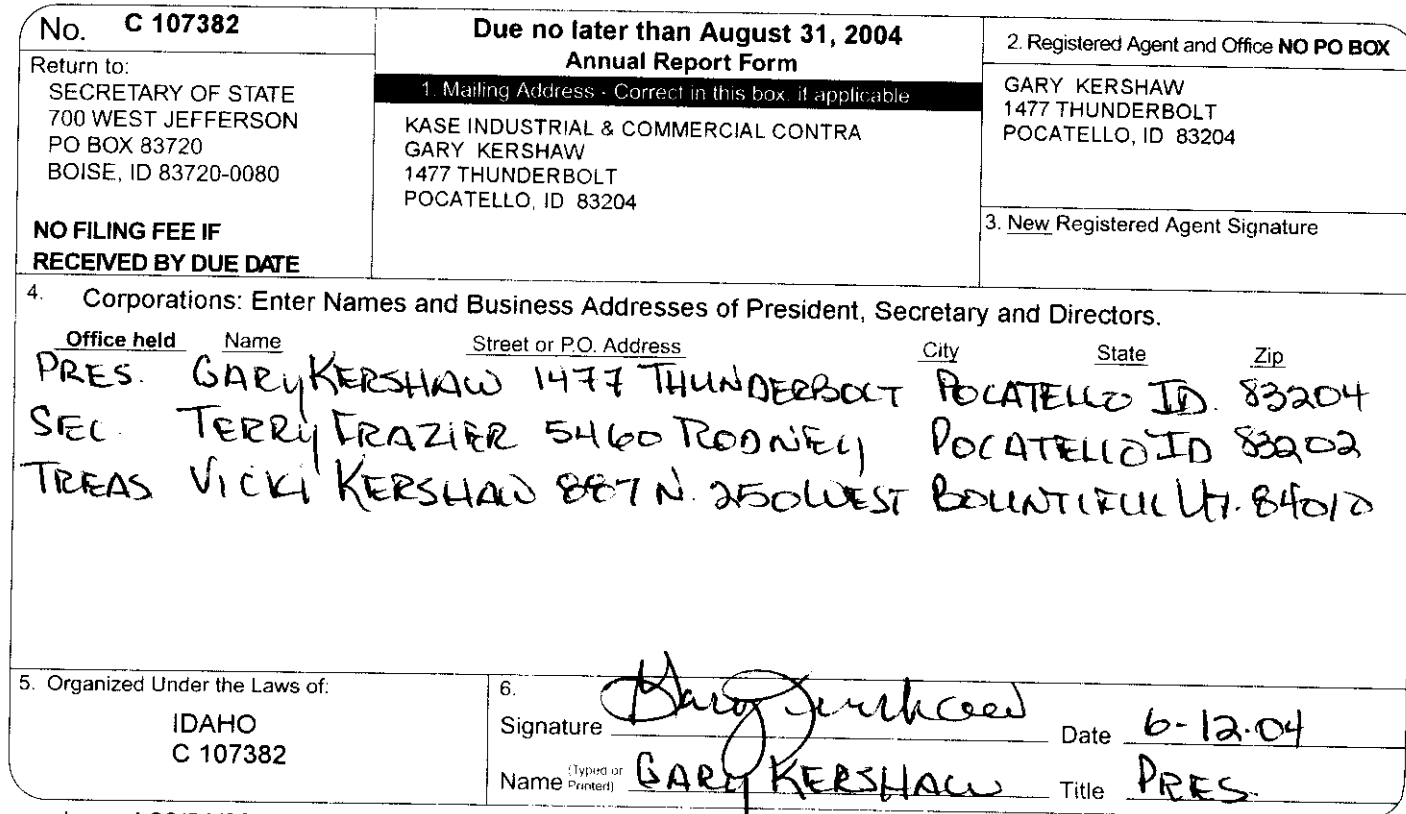 No. C 107382
Return to:
SECRETARY OF STATE
700 WEST JEFFERSON
PO BOX 83720
BOISE, ID 83720-0080
NO FILING FEE IF
RECEIVED BY DUE DATE
Due no later than August 31, 2004
Annual Report Form
1. Mailing Address - Correct in this box, if applicable
KASE INDUSTRIAL & COMMERCIAL CONTRA
GARY KERSHAW
1477 THUNDERBOLT
POCATELLO, ID 83204
2. Registered Agent and Office NO PO BOX
GARY KERSHAW
1477 THUNDERBOLT
POCATELLO, ID 83204
3. New Registered Agent Signature
4. Corporations: Enter Names and Business Addresses of President, Secretary and Directors.
Office held Name Street or P.O. Address City State Zip
PRES. GARY KERSHAW 1477 THUNDERBOLT POCATELLO ID. 83204
SEC. TERRY FRAZIER 5460 RODNEY POCATELLO ID 83202
TREAS VICKI KERSHAW 887 N. 250 WEST BOUNTIFUL UT. 84010
5. Organized Under the Laws of:
IDAHO
C 107382
6.
Signature Gary Kershaw Date 6-12-04
Name (Typed or Printed) GARY KERSHAW Title PRES.